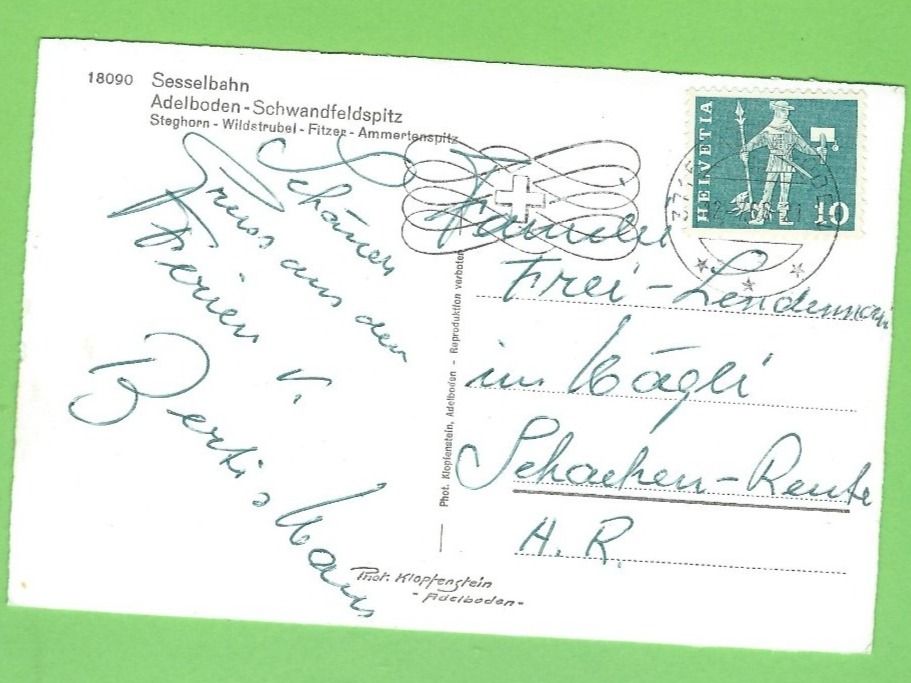 18090 Sesselbahn
Adelboden - Schwandfeldspitz
Steghorn - Wildstrubel - Fitzer - Ammertenspitz
Schönen
Gruss aus den
Ferien v.
Berti
HELVETIA
10
Familie
Frei - Lendenmann
im Mägli
Schachen - Reute
A. R.
Phot. Klopfenstein, Adelboden - Reproduktion verboten
Phot. Klopfenstein
- Adelboden -